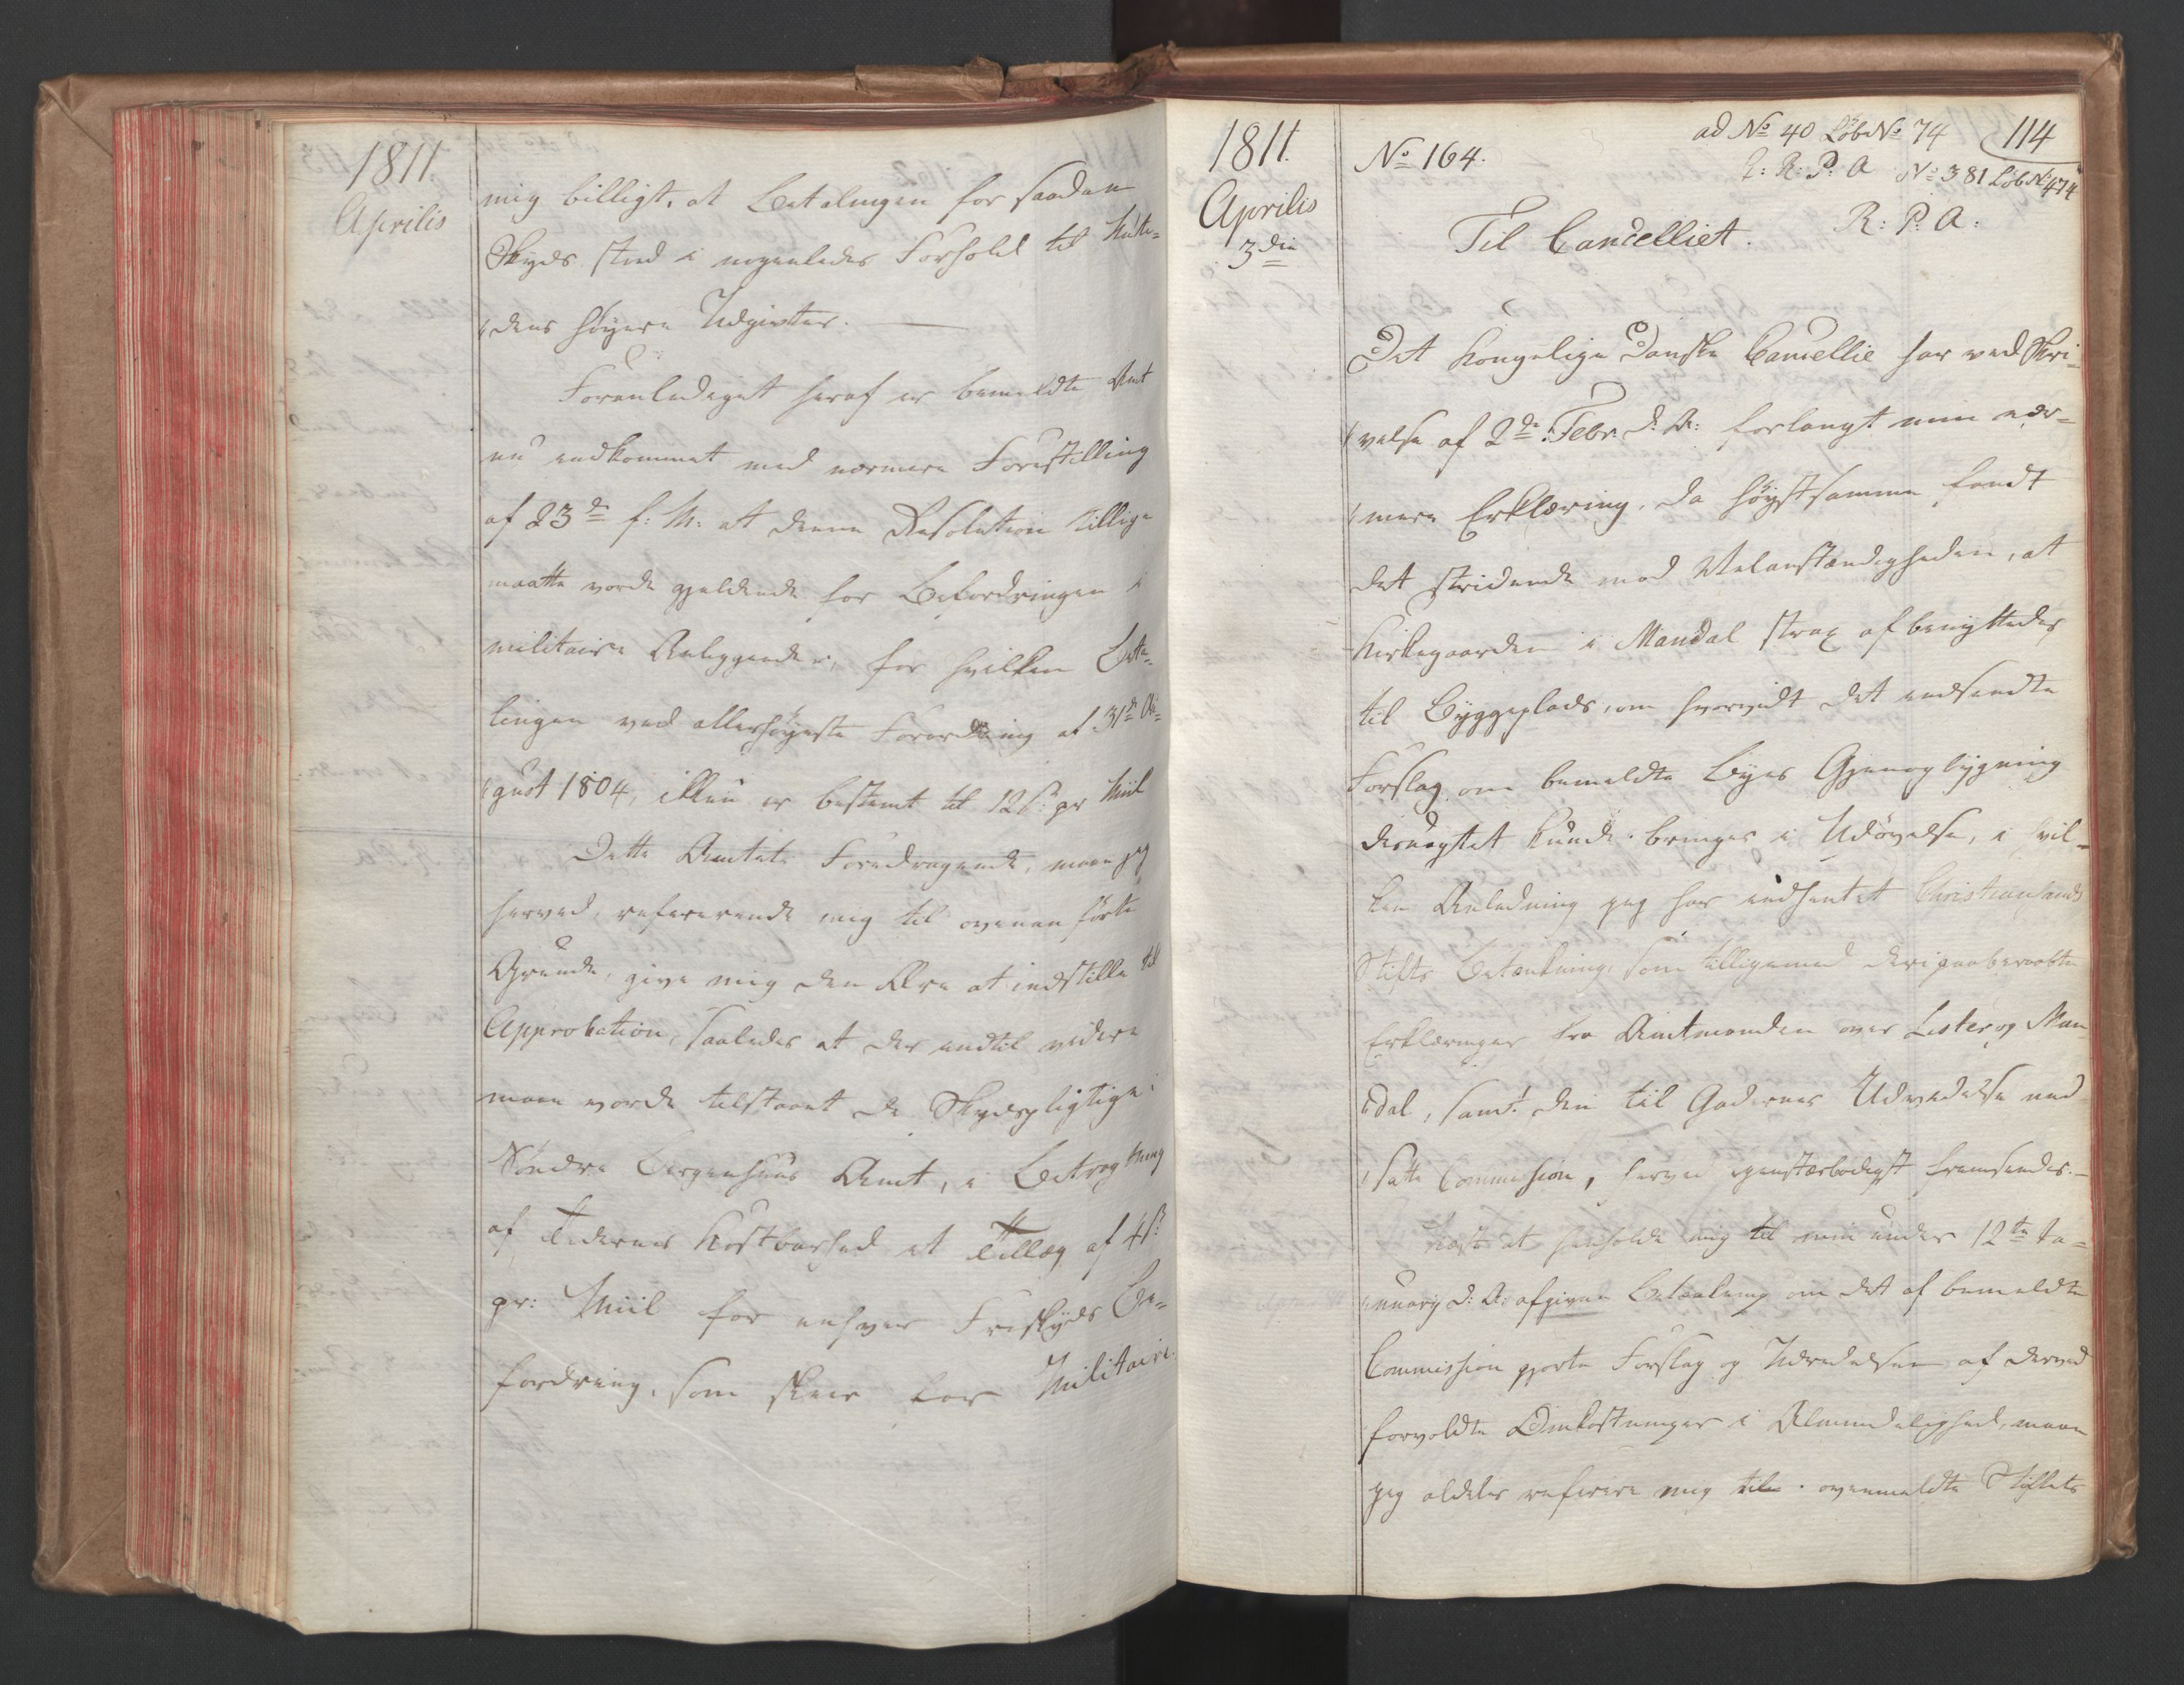 1811
Aprilis
mig billigt, at Betalingen for saadan
Skyds stod i nogenledes Forhold til Nuti-
dens høyere Udgivter. —
Foranlediget heraf er bemeldte Amt
nu indkommet med nærmere Forestilling
af 23de f: M: at denne Resolution tillige
maatte vorde gjeldende for Befordringen i
militaire Anliggender, for hvilken Beta-
lingen ved allerhøyeste Forordning af 31te Au-
gust 1804, ikkun er bestemt til 12 s. pr Miil
Dette Amtets Foredragende, maae jeg
herved, refererende mig til ovenanførte
Grunde, give mig den Ære at indstille til
Approbation, saaledes at der indtil videre
maae vorde tilstaaet de Skydspligtige i
Søndre Bergenhuus Amt, i Betragtning
af Tidernes Kostbarhed et Tillæg af 4 s.
pr: Miil for enhver Friskyds Be-
fordring, som skeer for Militaire.
1811.
Aprilis
3die
No 164.
ad No 40 LøbNo 74
114
R: R: P: A No 381 LøbNo 474
R: P: A:
Til Cancelliet.
Det Kongelige Danske Cancellie har ved Skri-
velse af 2de Febr. d: A: forlangt min nær-
mere Erklæring, da høystsamme fandt
det stridende mod Velanstændigheden, at
Kirkegaarden i Mandal strax afbenyttedes
til Byggeplads, om hvorvidt det indsendte
Forslag om bemeldte Byes Gjenopbygning
desuagtet kunde bringes i Udøvelse, i hvil-
ken Anledning jeg har indhentet Christiansands
Stifts Betænkning, som tilligemed deri paaberaabte
Erklæringer fra Amtmanden over Lister og Man-
dal, samt den til Gadernes Udvidelse ned-
satte Commission, herved tienstærbødigst fremsendes. —
Næst at henholde mig til min under 12te Ja-
nuarij d: A: afgivne Betænkning om det af bemeldte
Commission gjorte Forslag og Udredelsen af derved
forvoldte Omkostninger i Almindelighed, maae
jeg aldeles referere mig til ovenmeldte Stiftets